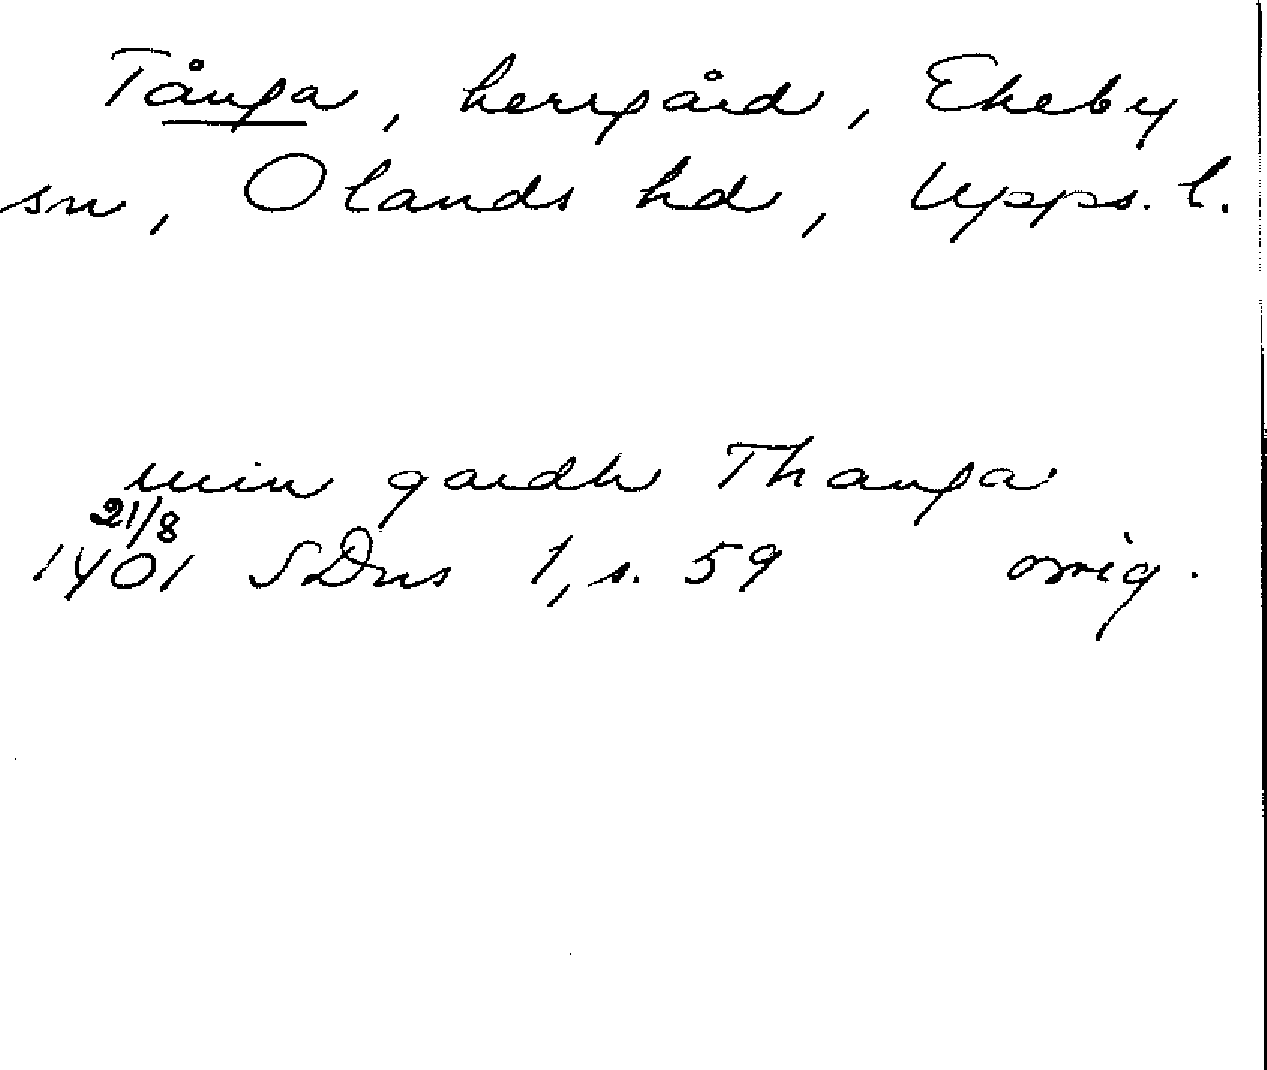 Tånga, herrgård, Ekeby
sn, Olands hd, Upps. l.
min gardh Thanga
21/8
1401 SDns 1, s. 59 orig.